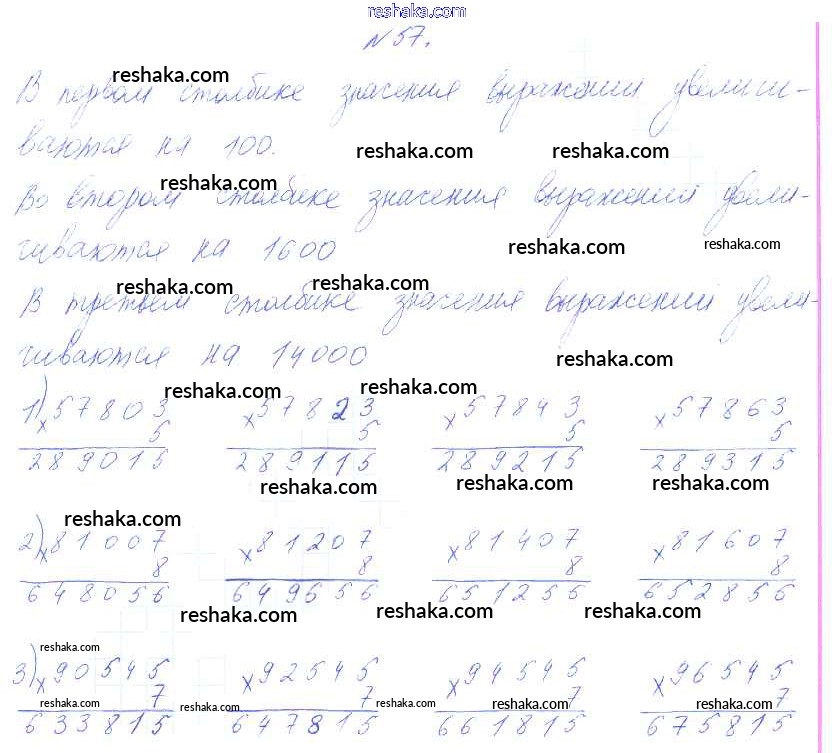 reshaka.com
№57.
В первом столбике значения выражений увеличи-
reshaka.com
ваются на 100.
reshaka.com reshaka.com
Во втором столбике значения выражений увели-
reshaka.com
чиваются на 1600
reshaka.com reshaka.com
В третьем столбике значения выражений увели-
reshaka.com reshaka.com
чиваются на 14000
reshaka.com
reshaka.com reshaka.com reshaka.com
1) × 57803 × 57823 × 57843 × 57863
5 5 5 5
289015 289115 289215 289315
reshaka.com reshaka.com reshaka.com
reshaka.com
2) × 81007 × 81207 × 81407 × 81607
8 8 8 8
648056 649656 651256 652856
reshaka.com reshaka.com reshaka.com
reshaka.com
3) × 90545 × 92545 × 94545 × 96545
7 7 7 7
reshaka.com reshaka.com reshaka.com reshaka.com
633815 647815 661815 675815